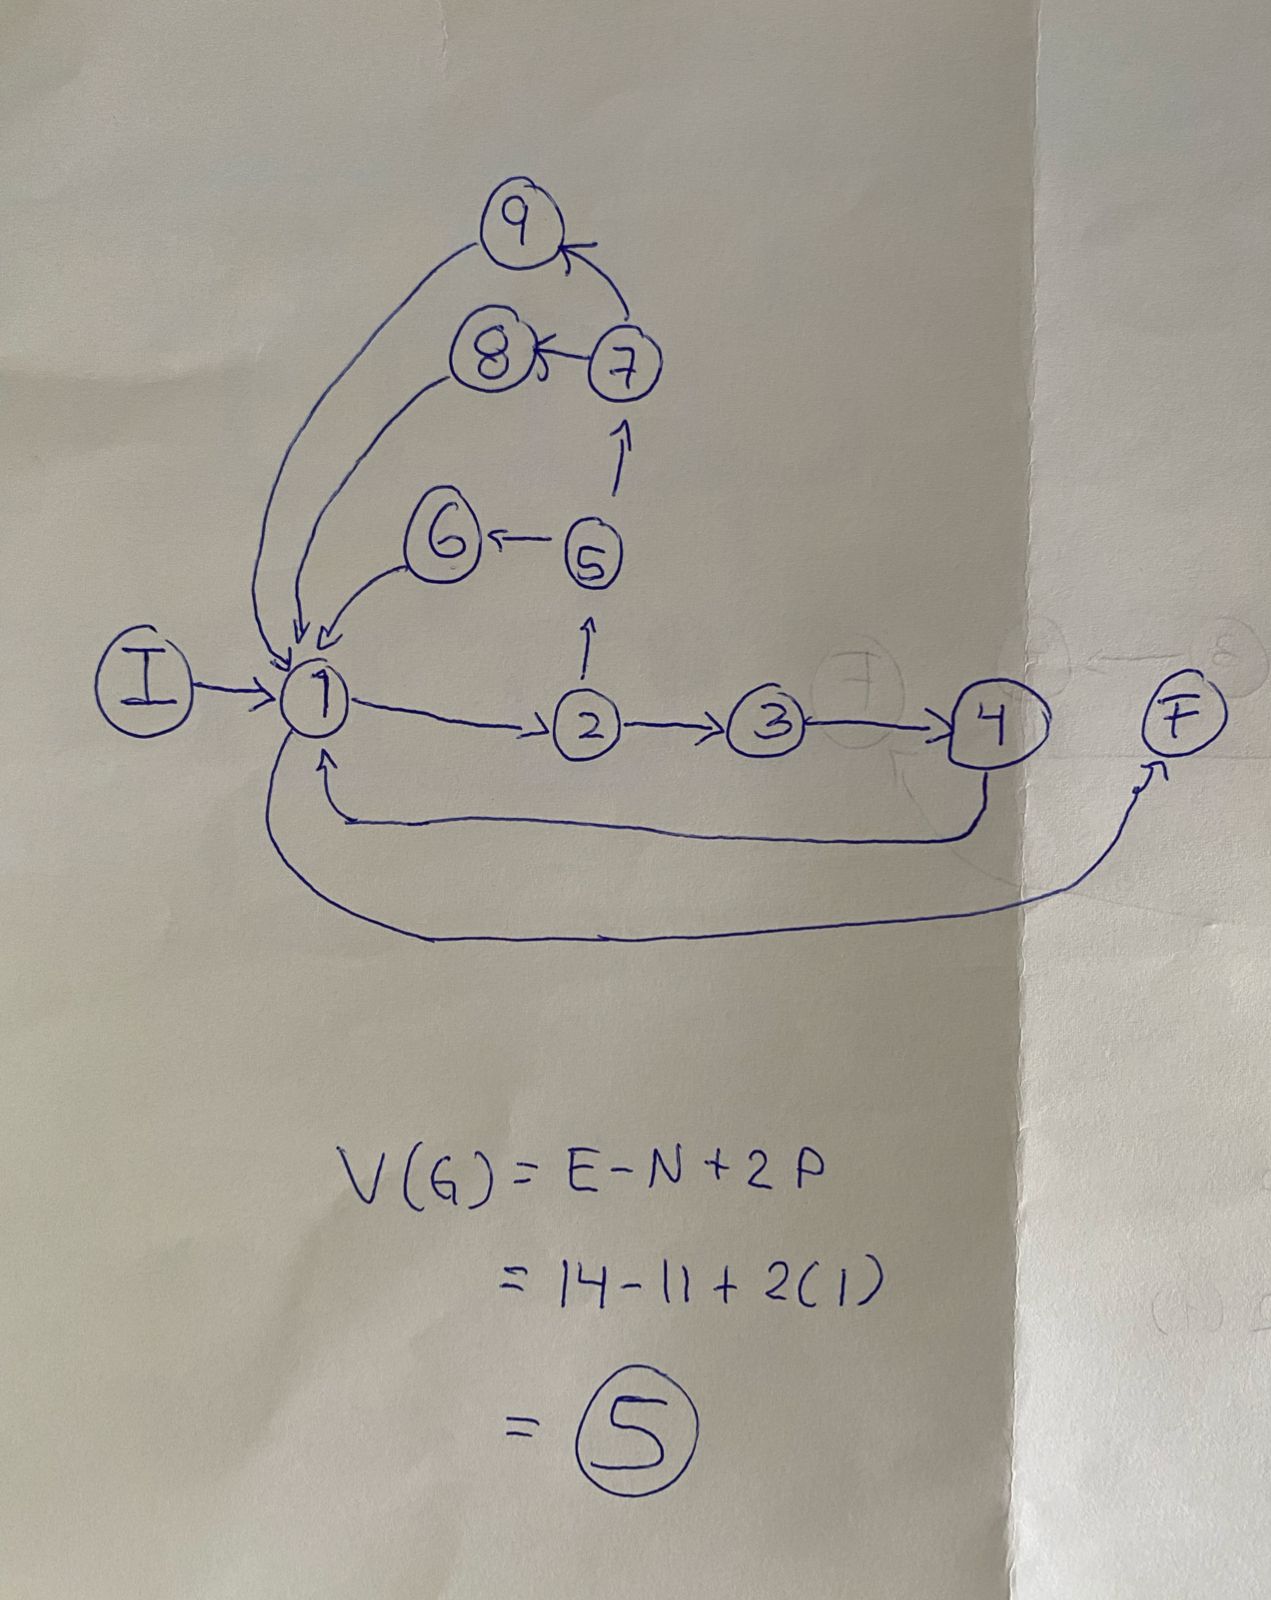 9
8 7
6 5
I 1 2 3 4 F
V(G) = E - N + 2 P
= 14 - 11 + 2(1)
= 5